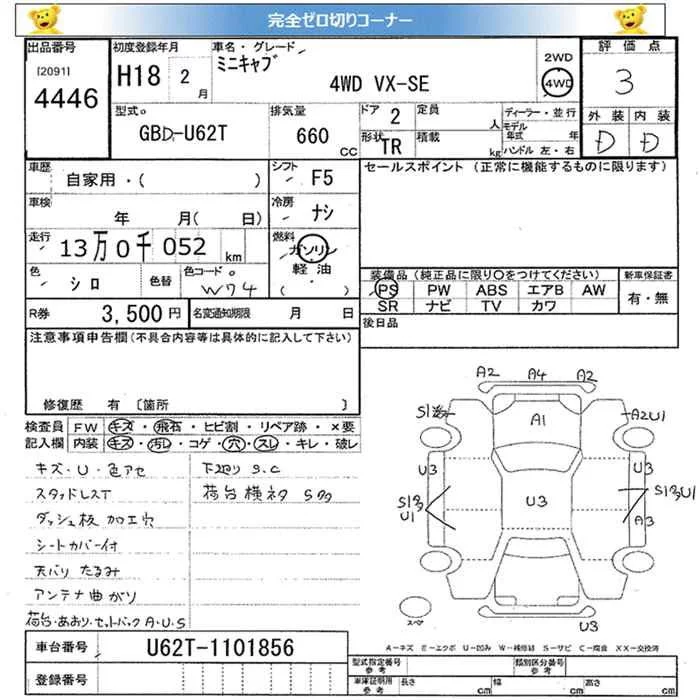 完全ゼロ切りコーナー
出品番号 初度登録年月 車名・グレード 2WD 評価点
[2091] H18 2月 ミニキャブ 4WD VX-SE 4WD 3
4446
型式 排気量 ドア 2 定員 人 ディーラー・並行 外装 内装
GBD-U62T 660 CC 形状 TR 積載 kg モデル年式 年 ハンドル 左・右 D D
車歴 自家用・( ) シフト F5 セールスポイント (正常に機能するものに限ります)
車検 年 月( 日) 冷房 ナシ
走行 13万0千052 km 燃料 ガソリン
軽油
( )
色 シロ 色替 色コード W74 装備品 (純正品に限り○をつけてください) 新車保証書
PS PW ABS エアB AW 有・無
SR ナビ TV カワ
R券 3,500円 名変通知期限 月 日 後日品
注意事項申告欄(不具合内容等は具体的に記入して下さい)
修復歴 有 〔箇所 〕
検査員 FW キズ・飛石・ヒビ割・リペア跡・×要
記入欄 内装 キズ・汚レ・コゲ・穴・スレ・キレ・破レ
キズ・U・色アセ 下廻り S.C
スタッドレスT 荷台横ネタ S多
ダッシュ板 加工穴
シートカバー付
天バリ たるみ
アンテナ曲がり
荷台・あおり・セットバック A・U・S
A2 A4 A2
S1多 A1 A2U1
U3 U3
S1多 U1 U3 S1多U1
A3
スペア U3
A-キズ E-エクボ U-凹み W-補修跡 S-サビ C-腐食 XX-交換済
車台番号 U62T-1101856
登録番号
型式指定番号 参考 類別区分番号 参考
車庫証明用 参考 長さ cm 幅 cm 高さ cm